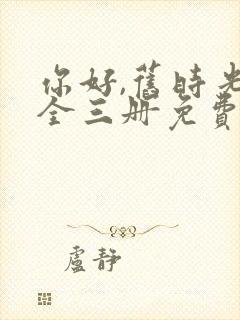 你好,舊時光
全三册免費
盧靜